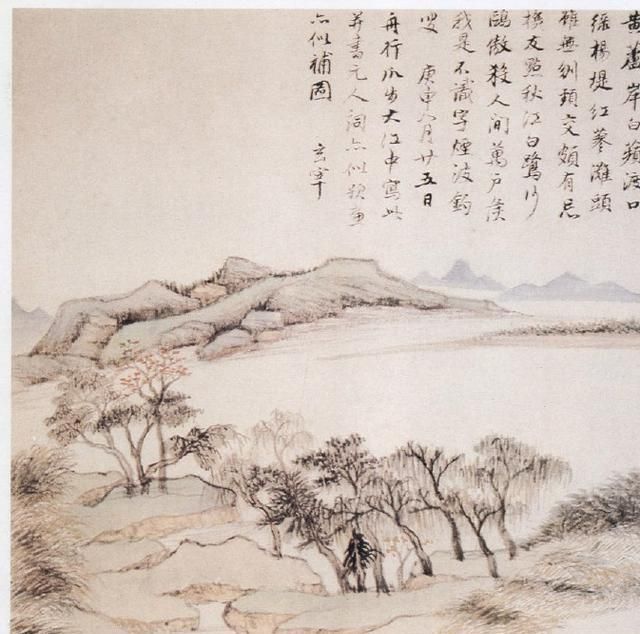 黃蘆岸白蘋渡口
綠楊堤紅蓼灘頭
雖無刎頸交頗有忘
機友點秋江白鷺沙
鷗傲殺人間萬戶侯
我是不識字煙波釣
叟 庚申八月廿五日
舟行瓜步大江中寫此
并書元人詞亦似題畫
亦似補圖 玄宰